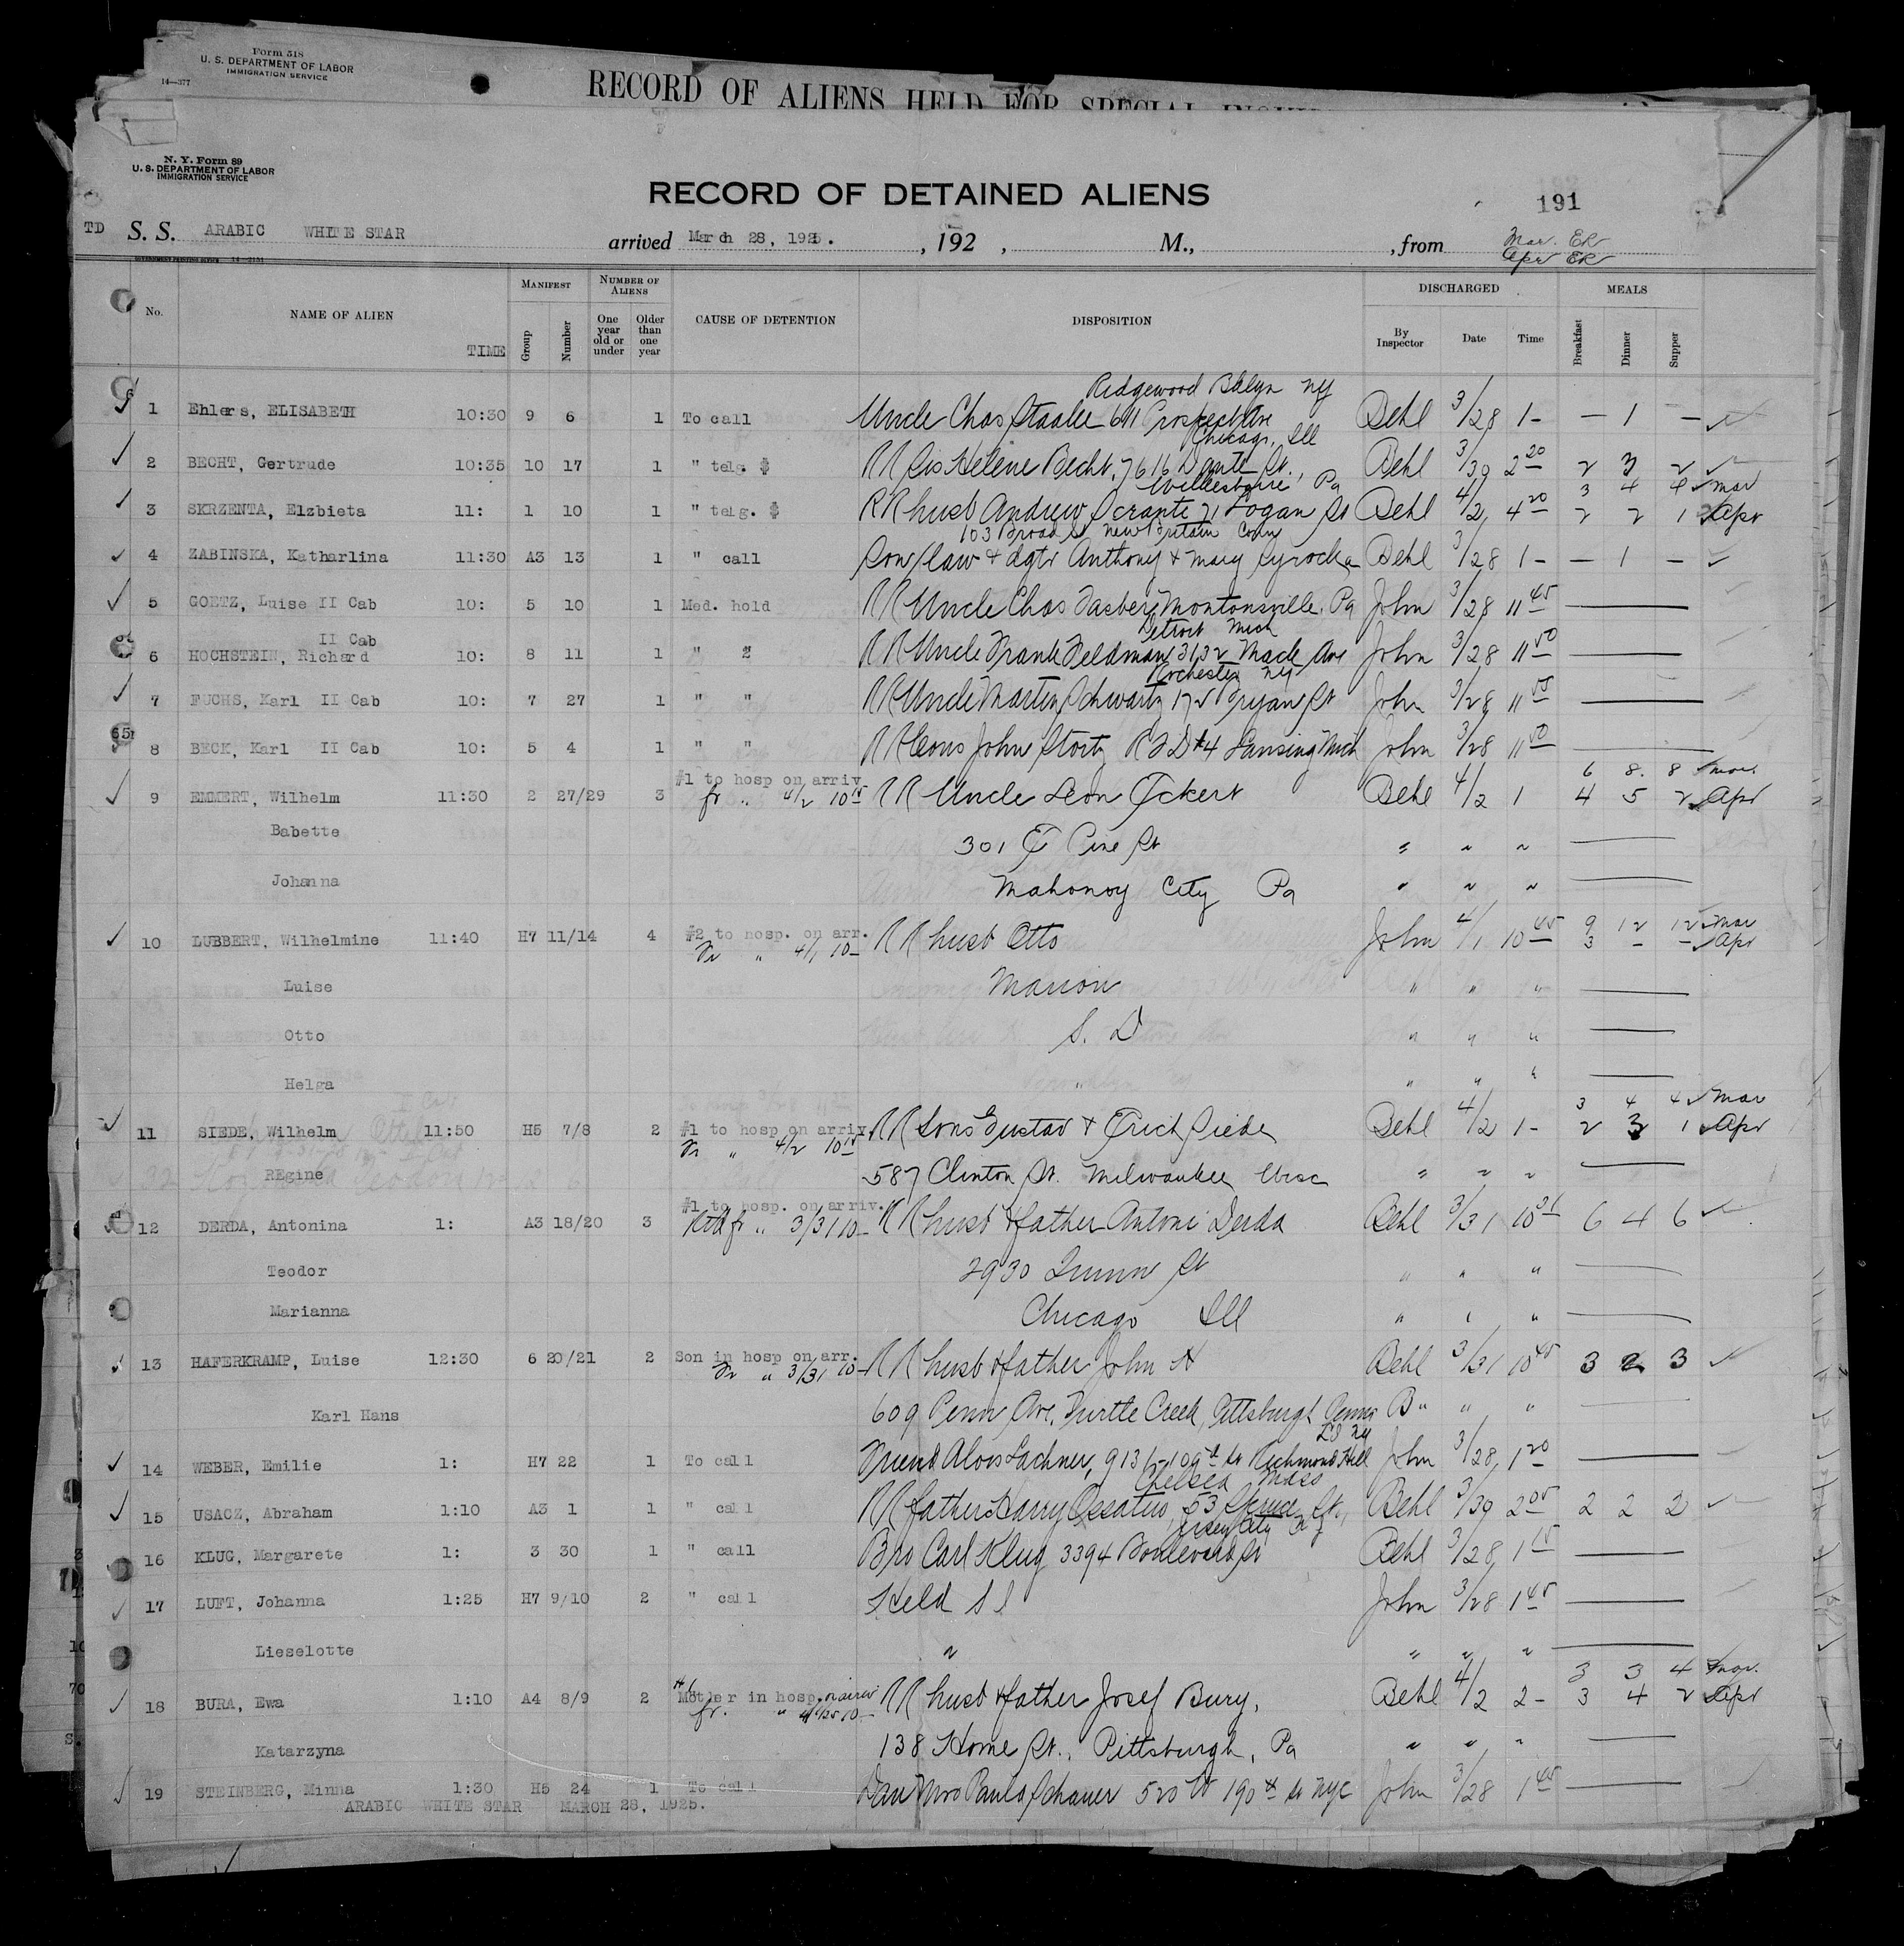 Form 518
U. S. DEPARTMENT OF LABOR
IMMIGRATION SERVICE
14—377
RECORD OF ALIENS HELD FOR SPECIAL
N. Y. Form 89
U. S. DEPARTMENT OF LABOR
IMMIGRATION SERVICE
RECORD OF DETAINED ALIENS
191
TD S. S. ARABIC WHITE STAR arrived March 28, 1925. , 192 , M., , from Mar. ER
Apr ER
No. NAME OF ALIEN TIME MANIFEST Group Number NUMBER OF ALIENS One year old or under Older than one year CAUSE OF DETENTION DISPOSITION DISCHARGED By Inspector Date Time MEALS Breakfast Dinner Supper
Ridgewood Bklyn NY
1 Ehlers, ELISABETH 10:30 9 6 1 To call Uncle Chas 611 Prospect Ave Behl 3/28 1- — 1 —
Chicago, Ill
2 BECHT, Gertrude 10:35 10 17 1 " telg. $ RR Sis Helene Becht, 7616 Dante St., Behl 3/30 2 20 2 3 2
Pa 3 4 4 Mar
3 SKRZENTA, Elzbieta 11: 1 10 1 " telg. $ RR husb Andrew Scrante 71 Logan St Behl 4/2 4 20 2 2 1 Apr
103 Broad St New Britain Conn
4 ZABINSKA, Katharlina 11:30 A3 13 1 " call Son/law & dgtr Anthony & Mary Behl 3/28 1- — 1 —
5 GOETZ, Luise II Cab 10: 5 10 1 Med. hold RR Uncle Chas Montonsville, Pa John 3/28 11 45
II Cab Detroit Mich
6 HOCHSTEIN, Richard 10: 8 11 1 " " RR Uncle Frank Feldman 3132 Mack Ave John 3/28 11 50
Rochester NY
7 FUCHS, Karl II Cab 10: 7 27 1 " " RR Uncle Martin Schwartz 172 Bryan St John 3/28 11 55
8 BECK, Karl II Cab 10: 5 4 1 " " RR Cous John Stortz RFD #4 Lansing Mich John 3/28 11 50
#1 to hosp on arriv 6 8 8 Mar
9 EMMERT, Wilhelm 11:30 2 27/29 3 fr " 4/2 10 15 RR Uncle Leon Eckert Behl 4/2 1 4 5 2 Apr
Babette 301 E Pine St " " "
Johanna Mahonoy City Pa " " "
#2 to hosp. on arr. 9 12 12 Mar
10 LUBBERT, Wilhelmine 11:40 H7 11/14 4 Fr " 4/1 10- RR husb Otto John 4/1 10 45 3 - - Apr
Luise Marion " " "
Otto S. D " " "
Helga " " " "
3 4 4 Mar
11 SIEDE, Wilhelm 11:50 H5 7/8 2 #1 to hosp on arriv. RR Sons Gustav & Erich Siede Behl 4/2 1- 2 3 1 Apr
Fr " 4/2 10 15
REgine 587 Clinton St. Milwaukee Wisc " " "
#1 to hosp. on arriv.
12 DERDA, Antonina 1: A3 18/20 3 Rtd fr " 3/31 10- RR husb & father Antoni Derda Behl 3/31 10 31 6 4 6
Teodor 2930 St " " "
Marianna Chicago Ill " " "
13 HAFERKRAMP, Luise 12:30 6 20/21 2 Son in hosp on arr. RR husb & father John H Behl 3/31 10 45 3 2 3
Fr " 3/31 10-
Karl Hans 609 Penn Ave, Turtle Creek, Pittsburgh Penna B" " "
L I NY
14 WEBER, Emilie 1: H7 22 1 To call Friend Alois Lachner, 9136-109th St Richmond Hill John 3/28 1 20
Chelsea Mass
15 USACZ, Abraham 1:10 A3 1 1 " call RR father Harry 53 Spruce St., Behl 3/30 2 05 2 2 2
Jersey City N J
16 KLUG, Margarete 1: 3 30 1 " call Bro Carl Klug 3394 Boulevard Behl 3/28 1 15
17 LUFT, Johanna 1:25 H7 9/10 2 " call Held S I John 3/28 1 45
Lieselotte " " " "
#1 3 3 4 Mar.
18 BURA, Ewa 1:10 A4 8/9 2 Mother in hosp. on arriv RR husb & father Josef Bury, Behl 4/2 2- 3 4 2 Apr
fr. "
Katarzyna 138 Home St., Pittsburgh, Pa " " "
19 STEINBERG, Minna 1:30 H5 24 1 To call Mrs Paula Schauer 520 W 190th St NYC John 3/28 1 45
ARABIC WHITE STAR MARCH 28, 1925.